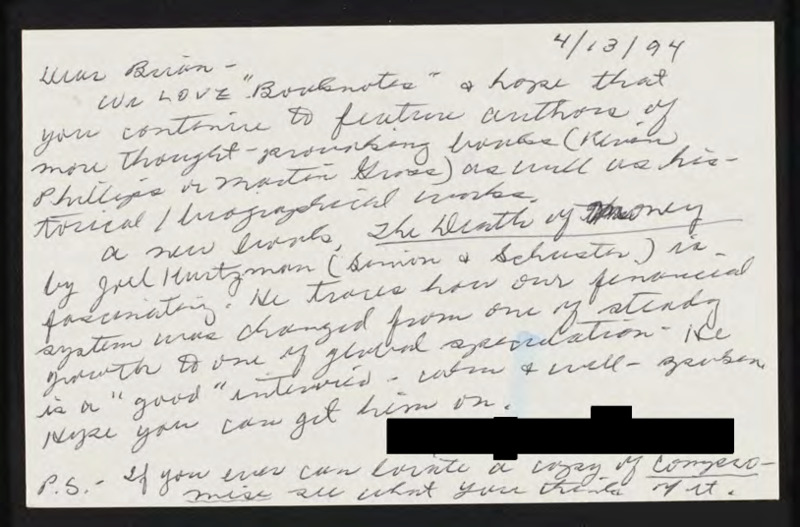 4/13/94
Dear Brian -
We LOVE "Booknotes" & hope that
you continue to feature authors of
more thought-provoking books (Kevin
Phillips or Martin Gross) as well as his-
torical / biographical works.
A new book, The Death of Money
by Joel Kurtzman (Simon & Schuster) is
fascinating. He traces how our financial
system was changed from one of steady
growth to one of global speculation - He
is a "good" interview - calm & well-spoken.
Hope you can get him on.
P.S. - If you ever can locate a copy of Compro-
mise see what you think of it.